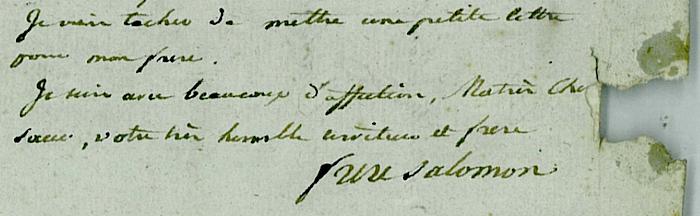 Je vien tacher de mettre une petite lettre
pour mon frere.
Je suis avec beaucoup d'affection, Ma très Che
soeur, votre très humble serviteur et frere
frere salomon